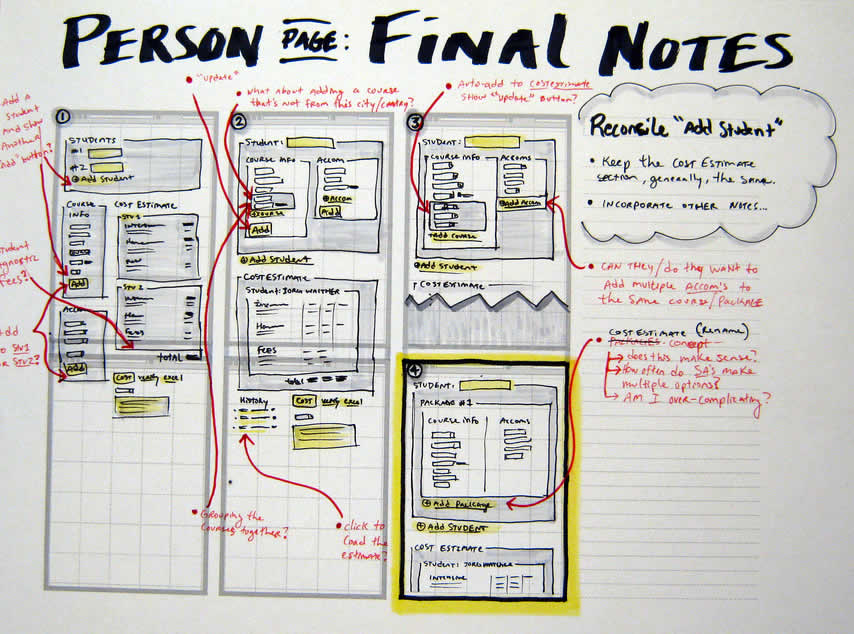 PERSON PAGE: FINAL NOTES
Add a
student
And show
Another
"add" button?
student
diagnostic
Fees?
Add
to STU1
or STU2?
①
STUDENTS
#1
#2
⊕ Add Student
COURSE
INFO
Add
Accom
Add
COST ESTIMATE
STU 1
STU 2
Fees
TOTAL
COST ready excel
• "update"
• What about adding a course
that's not from this city/country?
②
Student:
COURSE INFO
Accom
⊕ Accom
Add
⊕ course
Add
⊕ Add STUDENT
COST ESTIMATE
Student: JORG WAITHER
FEES
total
History
COST ready excel
• GROUPING the
courses together?
• click to
load the
estimate?
• Auto-add to COST ESTIMATE
SHOW "Update" BUTTON?
③
STUDENT:
COURSE INFO
ACCOMS
⊕ Add Accom
+ADD COURSE
⊕ Add STUDENT
COST ESTIMATE
Reconcile "Add Student"
• Keep the COST ESTIMATE
section, generally, the same.
• INCORPORATE OTHER NOTES...
• CAN THEY/do they WANT to
Add multiple ACCOM'S to
the same course/PACKAGE
• COST ESTIMATE (RENAME)
PACKAGES concept
does this make sense?
How often do SA's make
multiple options?
Am I over-complicating?
④
STUDENT:
PACKAGE #1
COURSE INFO
ACCOMS
⊕ Add PACKAGE
⊕ Add STUDENT
COST ESTIMATE
STUDENT: JORG WAITHER
INTENSIVE